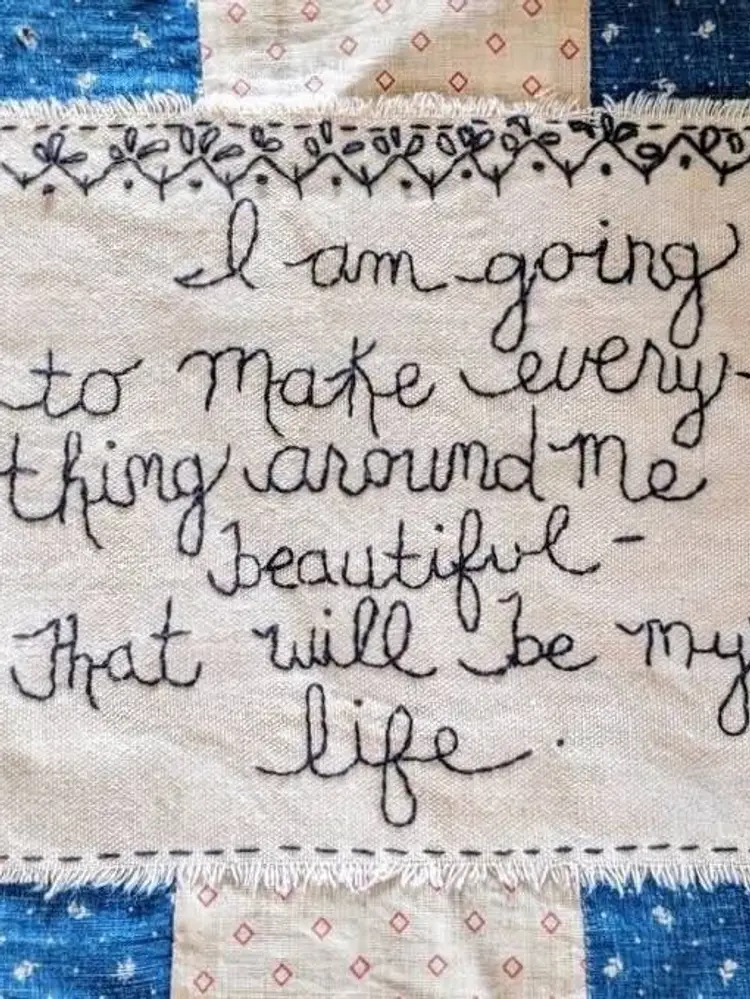 I am going
to make every-
thing around me
beautiful-
That will be my
life.